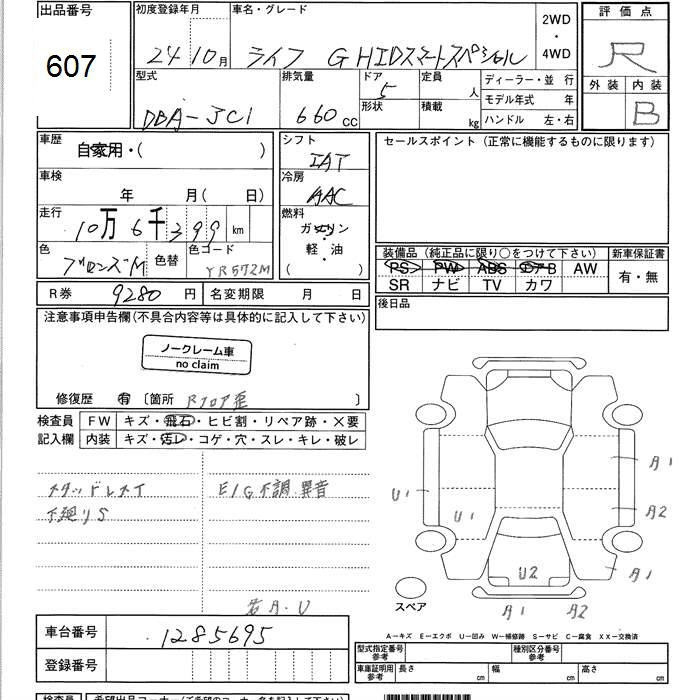 出品番号 初度登録年月 車名・グレード 2WD ・ 4WD 評価点
607 24 10月 ライフ G HIDスマートスペシャル R
型式 排気量 ドア 定員 ディーラー・並 行 外装 内装
DBA-JC1 660cc 5 人 モデル年式 年 B
形状 積載 kg ハンドル 左・右
車歴 シフト セールスポイント (正常に機能するものに限ります)
自家用・( ) IAT
車検 冷房
年 月(日) AAC
走行 燃料
10万6千399km ガソリン
軽・油
( )
色 色替 色コード 装備品 (純正品に限り○をつけて下さい) 新車保証書
ブロンズM YR572M PS PW ABS エアB AW 有・無
SR ナビ TV カワ
R券 9280円 名変期限 月 日 後日品
注意事項申告欄(不具合内容等は具体的に記入して下さい)
ノークレーム車
no claim
修復歴 有 〔箇所 Rフロア歪 〕
検査員 FW キズ・飛石・ヒビ割・リペア跡・×要
記入欄 内装 キズ・汚レ・コゲ・穴・スレ・キレ・破レ
スタッドレスタイ E/G不調.異音
下廻りS
U1 U1 A1
A2
U2 A1
A1 A2
スペア
若A.U
A-キズ E-エクボ U-凹み W-補修跡 S-サビ C-腐食 XX-交換済
車台番号 1285695
登録番号
型式指定番号 参考 種別区分番号 参考
車庫証明用 参考 長さ cm 幅 cm 高さ cm
検査員 希望出品コーナー(ご希望のコーナー名を記入下さい)